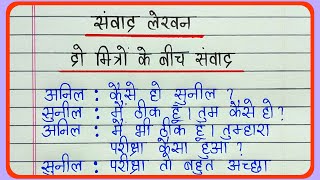 संवाद लेखन
दो मित्रों के बीच संवाद
अनिल : कैसे हो सुनील ?
सुनील : मैं ठीक हूँ। तुम कैसे हो ?
अनिल : मैं भी ठीक हूँ। तुम्हारा
परीक्षा कैसा हुआ ?
सुनील : परीक्षा तो बहुत अच्छा